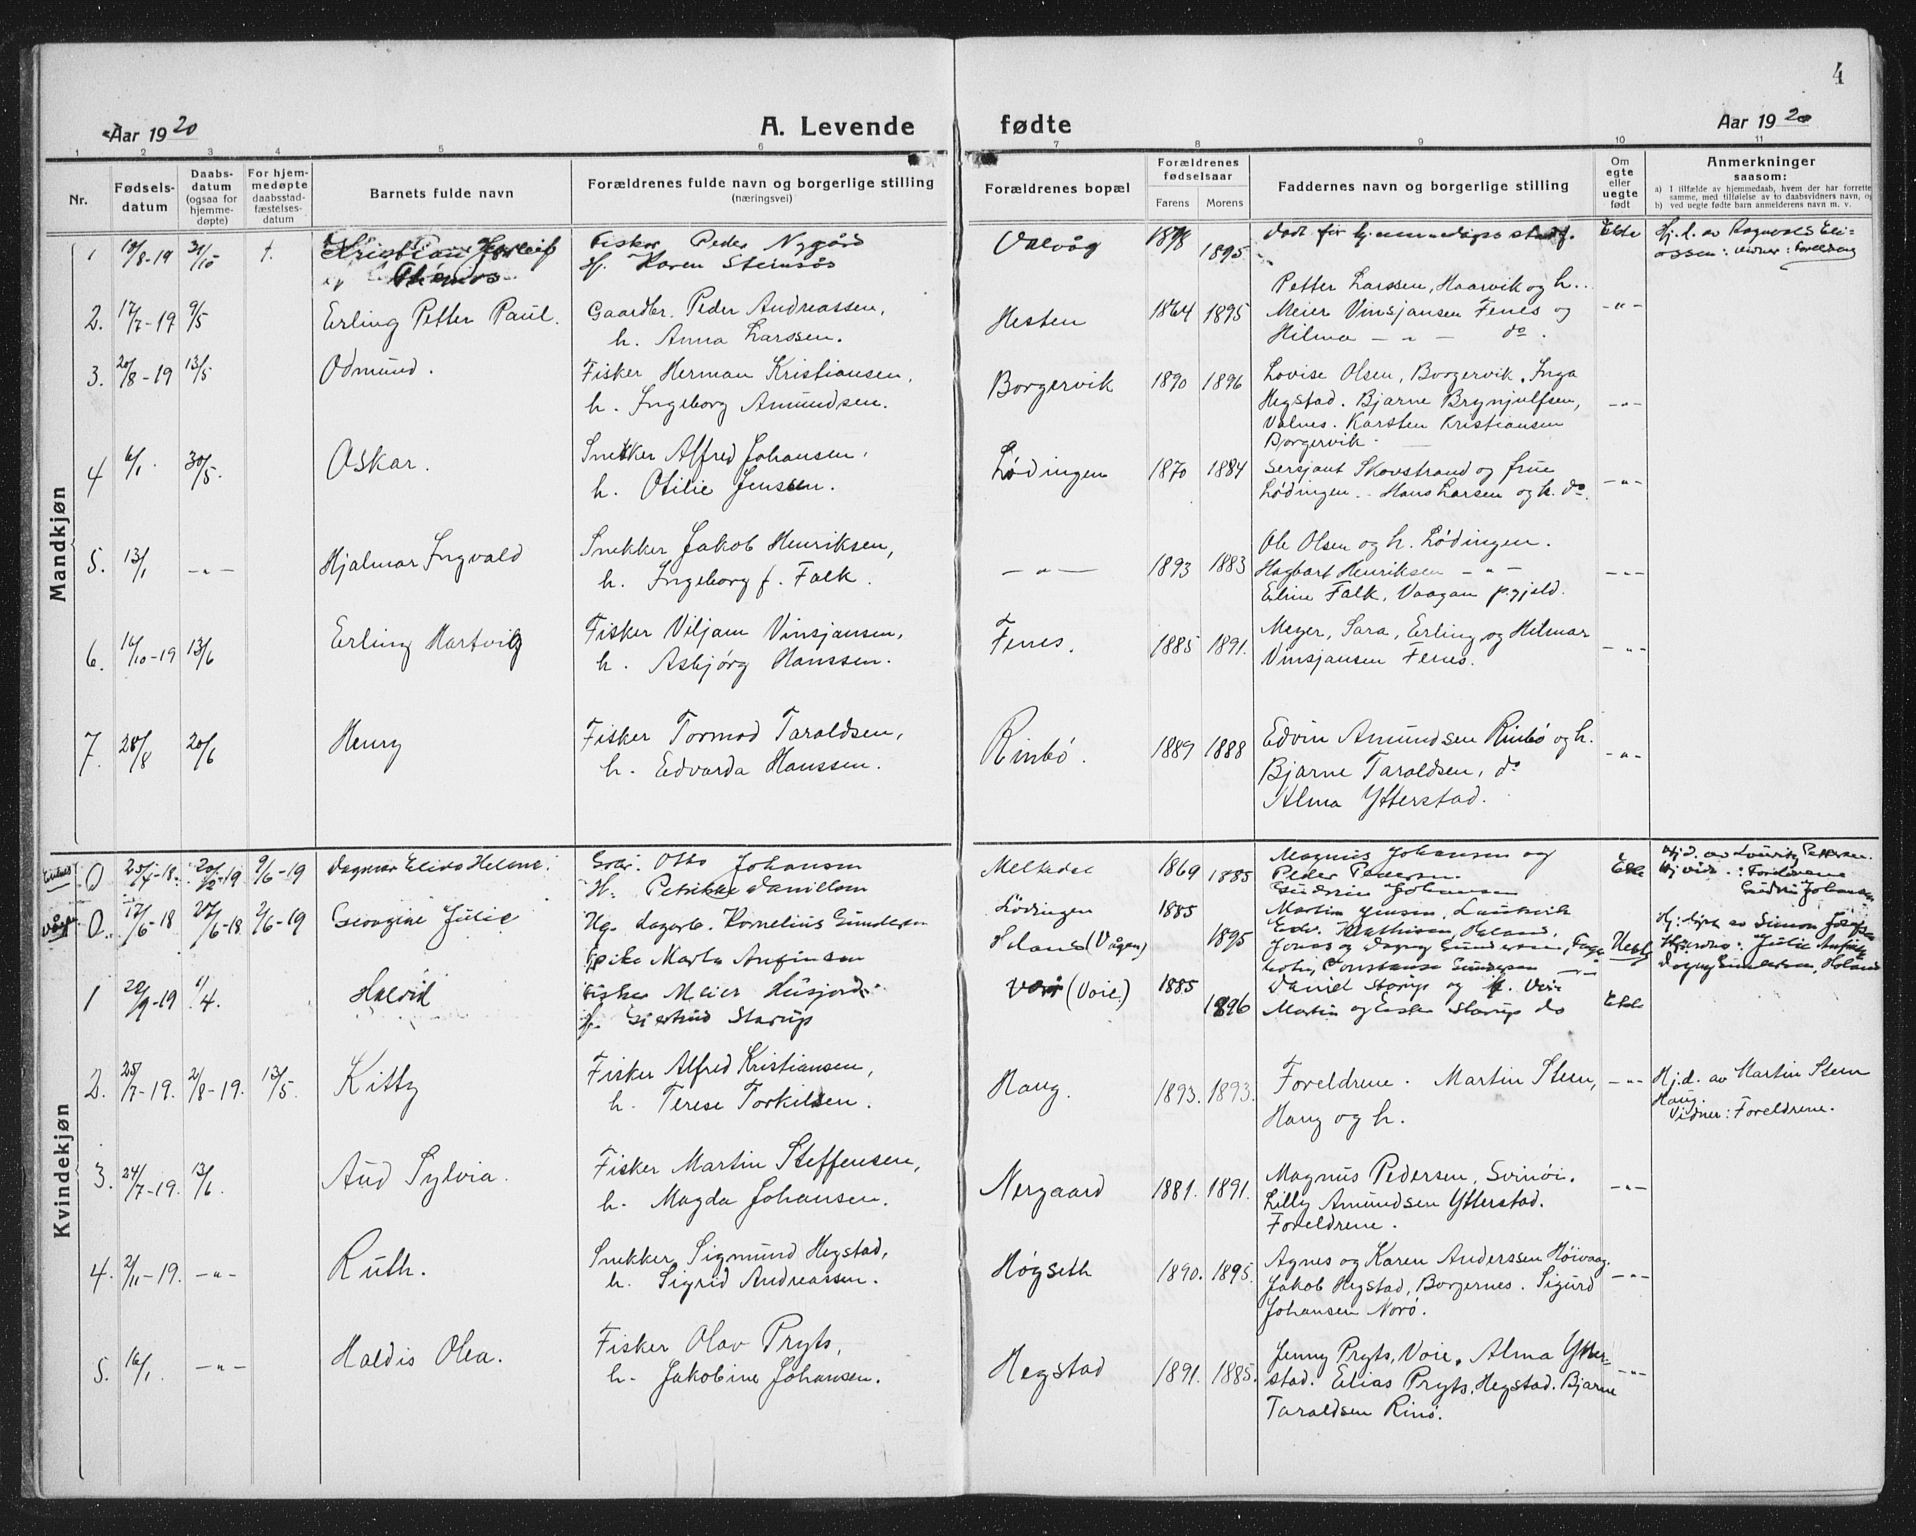 4
Aar 1920
A. Levende fødte
Aar 1920
1 2 3 4 5 6 7 8 9 10 11
Nr.
Fødsels-
datum
Daabs-
datum
(ogsaa for
hjemme-
døpte)
For hjem-
medøpte
daabsstad-
fæstelses-
datum
Barnets fulde navn
Forældrenes fulde navn og borgerlige stilling
(næringsvei)
Forældrenes bopæl
Forældrenes
fødselsaar
Farens Morens
Faddernes navn og borgerlige stilling
Om
egte
eller
uegte
født
Anmerkninger
saasom:
a) I tilfælde av hjemmedaab, hvem der har forrettet
samme, med tilføielse av to daabsvidners navn, og
b) ved uegte født barn anmelderens navn m. v.
Mandkjøn
1 10/8-19 31/10 t. Kristian
Fisker Peder Nygård
Karen Steinsøs
Valvåg 1898 1895
Ekte
Hj. d. av Ragnvald Eli-
assen: vidner: Foreldrene
2. 17/7-19 9/5 Erling Petter Paul.
Gaardbr. Peder Andreassen,
h. Anna Larssen.
Hesten 1864 1895
Petter Larssen, Haarvik og h.
Meier Vinsjansen Fenes og
Hilma — „ — do.
—„—
3. 20/8-19 13/5 Odmund.
Fisker Herman Kristiansen,
h. Ingeborg Amundsen.
Borgervik 1890 1896
Lovise Olsen, Borgervik. Inga
Hegstad. Bjarne Brynjulfsen,
Valnes. Karsten Kristiansen
Borgervik.
—„—
4 6/1. 30/5. Oskar.
Snekker Alfred Johansen,
h. Otilie Jenssen.
Lødingen 1870 1884
Sersjant Skovstrand og frue
Lødingen. Hans Larsen og h. do.
—„—
5. 13/1 —„— Hjalmar Ingvald
Snekker Jakob Henriksen,
h. Ingeborg f. Falk.
—„— 1893 1883
Ole Olsen og h. Lødingen.
Hagbart Henriksen — „ —
Eline Falk, Vaagan p.gjeld.
—„—
6. 14/10-19 13/6 Erling Hartvig
Fisker Viljam Vinsjansen,
h. Asbjørg Hanssen.
Fenes. 1885 1891.
Meyer, Sara, Erling og Hilmar
Vinsjansen Fenes.
—„—
7. 28/8 20/6 Henry
Fisker Tormod Taraldsen,
h. Edvarda Hanssen.
Rinbø. 1889 1888
Edvin Amundsen Rinbø og h.
Bjarne Taraldsen, do
Alma Ytterstad.
—„—
Kvindekjøn
0 25/4-18. 9/6-19 Dagmar Elida Helene.
Otto Johansen
Petrikke Danielsen
Melkedal 1869 1885
Magnus Johansen og
Peder Pedersen
Gudrun Johansen
Ekte
Hj.d. av Lauritz Pettersen.
Hj vidn.: Foreldrene
Gudrun Johansen
0. 17/6-18 2/6-19 Georgine Julie
Ug. Lagerb. Kornelius Gundersen
Pike Marta Anfinsen
Lødingen
Holand (Vågan) 1885 1895
Martin Jensen,
Edv. Mathisen, Holand,
Jonas og Dagny Gundersen,
Constanse Gundersen
Uekte
1 22/9-19 4. Halvid
Fisker Meier Husjord
Gjertrud Starup
(Voie.) 1885 1896
Daniel Starup og
Martin og Starup do
Ekte
2. 25/7-19. 2/8-19. 13/5. Kitty
Fisker Alfred Kristiansen,
h. Terese Torkilsen.
Haug. 1893. 1893.
Foreldrene. Martin Steen,
Haug og h.
—„—
Hj.d. av Martin Steen
Haug.
Vidner: Foreldrene.
3. 24/7-19. 13/6. Aud Sylvia.
Fisker Martin Steffensen,
h. Magda Johansen.
Nergaard 1881. 1891.
Magnus Pedersen, Svinøi.
Lilly Amundsen Ytterstad.
Foreldrene.
—„—
4. 2/11-19. —„— Ruth.
Snekker Sigmund Hegstad,
h. Sigrid Andreassen.
Høgseth 1890. 1895.
Agnes og Karen Anderssen Høivaag.
Jakob Hegstad, Borgernes. Sigurd
Johansen Norø.
—„—
5. 16/1. —„— Haldis Olea.
Fisker Olav Pryts,
h. Jakobine Johansen.
Hegstad 1891. 1885.
Jenny Pryts, Voie. Alma Ytter-
stad. Elias Pryts, Hegstad. Bjarne
Taraldsen Rinø.
—„—